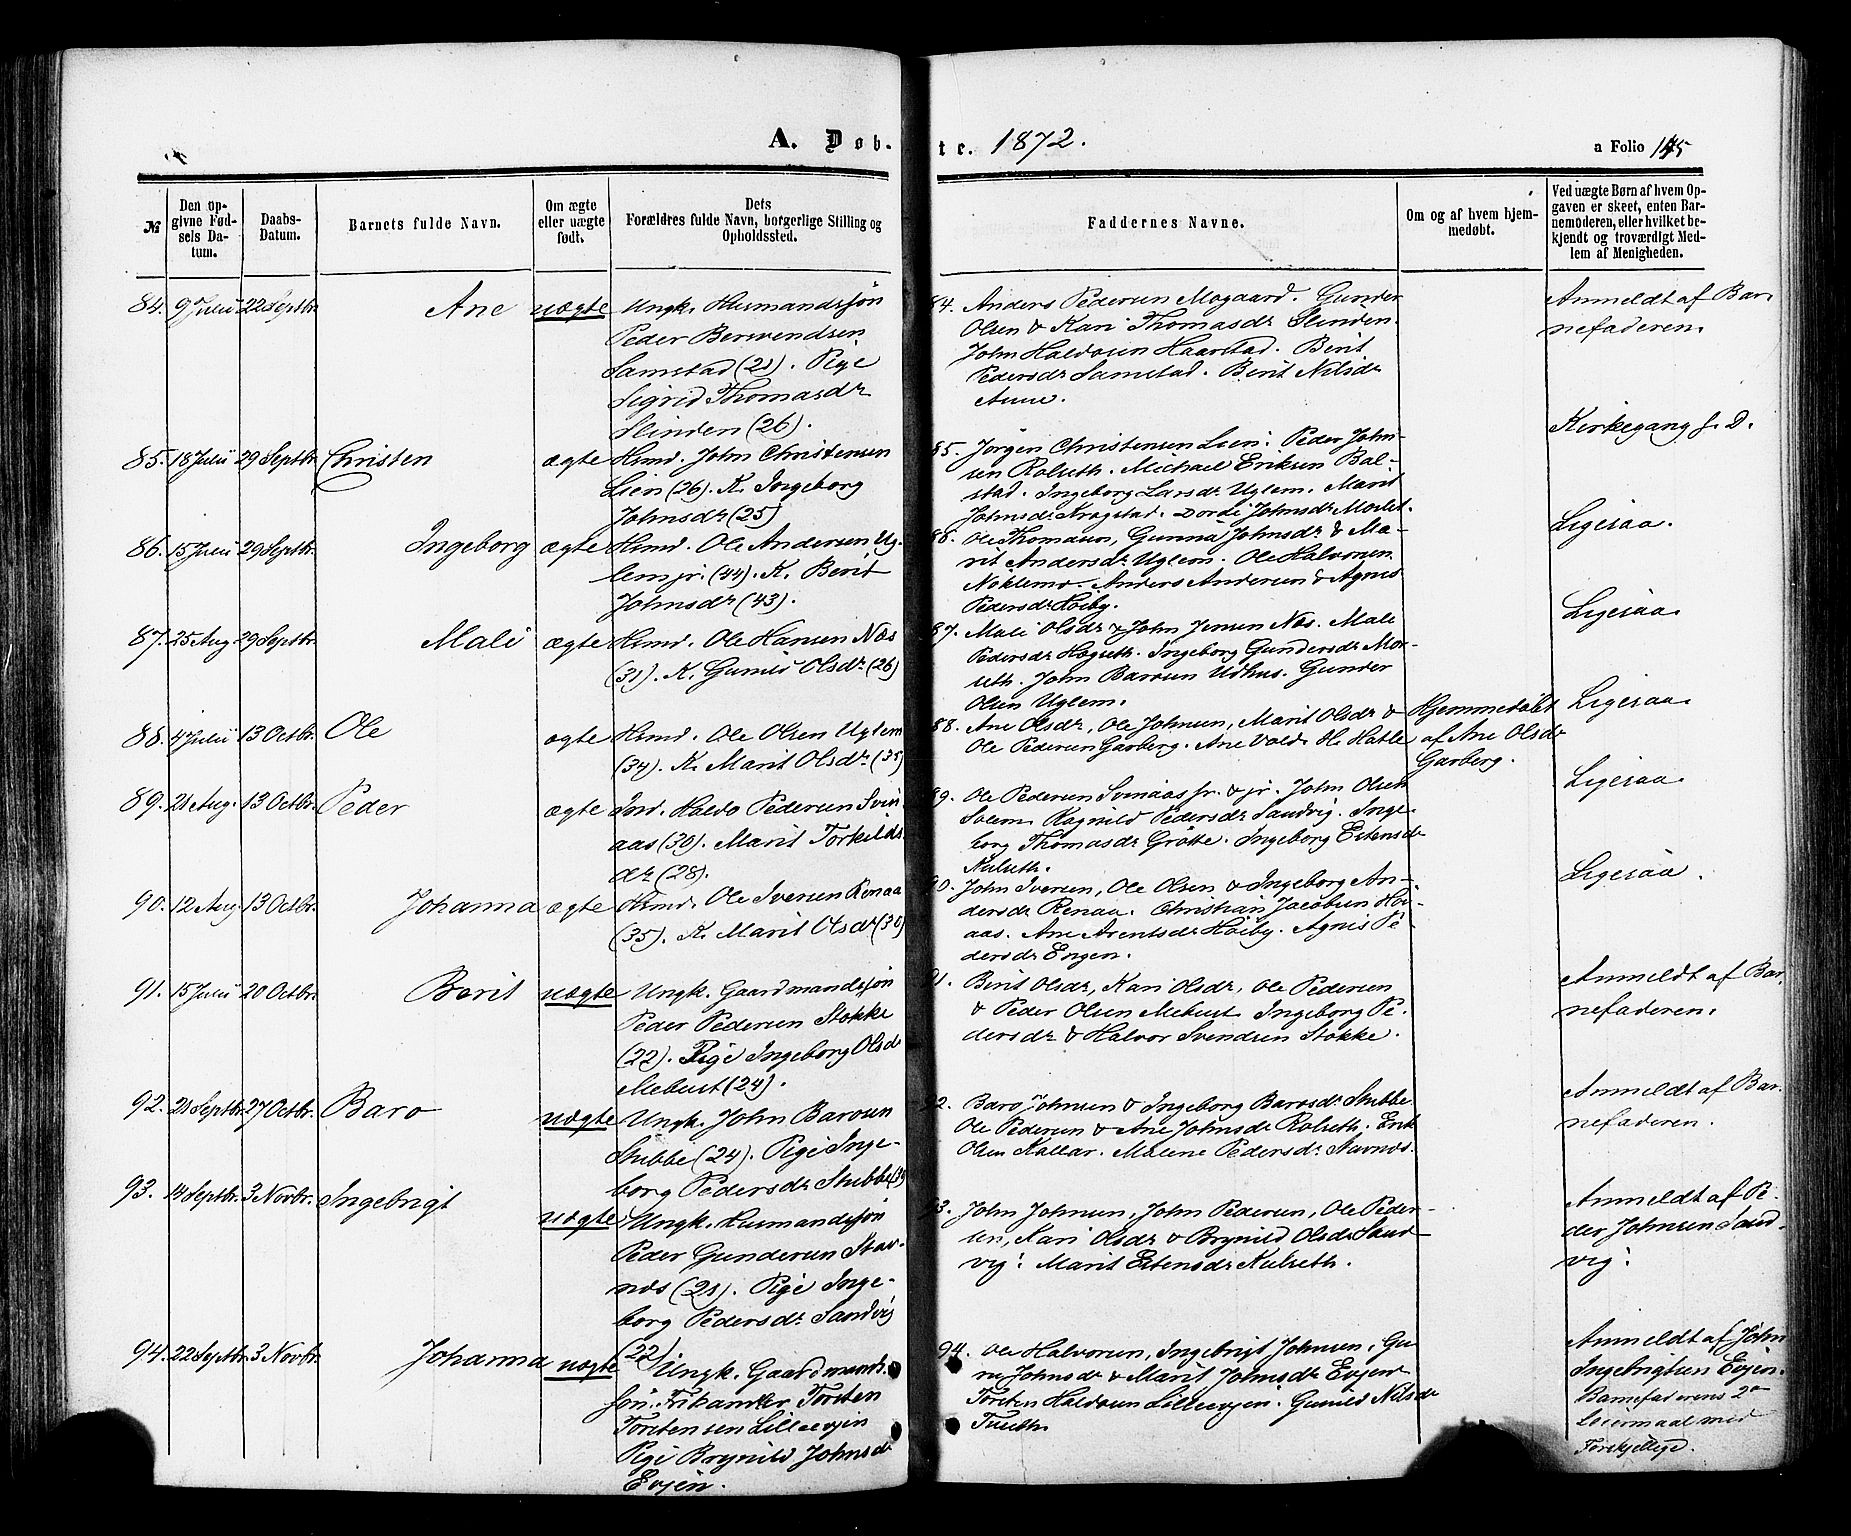 A. Døb- te. 1872. a Folio 145
№
Den op-
givne Fød-
sels Da-
tum.
Daabs-
Datum.
Barnets fulde Navn.
Om ægte
eller uægte
født.
Dets
Forældres fulde Navn, borgerlige Stilling og
Opholdssted.
Faddernes Navne.
Om og af hvem hjem-
medøbt.
Ved uægte Børn af hvem Op-
gaven er skeet, enten Bar-
nemoderen, eller hvilket be-
kjendt og troværdigt Med-
lem af Menigheden.
84. 9 Julii 22 Septbr. Ane uægte
Ungk. Husmandssøn
Peder Berwendsen
Samstad (21). Pige
Sigrid Thomasdr
Slinden (26).
84. Anders Pedersen Mogaard. Gunder
Olsen & Kari Thomasdr Slinden.
John Haldosen Haarstad. Berit
Pedersdr Samstad. Berit Nilsdr
Aune.
Anmeldt af Bar-
nefaderen.
85. 18 Julii 29 Septbr. Christen ægte
Husmd. John Christensen
Lien (26). K. Ingeborg
Johnsdr (25)
85. Jørgen Christensen Lien. Peder John-
sen Rolseth. Michael Eriksen Bal-
stad. Ingeborg Larsdr Uglem. Marit
Johnsdr Kragstad. Dordi Johnsdr Moslet.
Kirkegang s. D.
86. 15 Julii 29 Septbr. Ingeborg ægte
Husmd. Ole Andersen Ug-
lem jr. (44). K. Berit
Johnsdr (43).
86. Ole Thomasen, Gunna Johnsdr & Ma-
rit Andersdr Uglem. Ole Halvorsen
Noklemo. Anders Andersen & Agnis
Pedersdr Høiby.
Ligesaa.
87. 25 Aug. 29 Septbr. Mali ægte
Husmd. Ole Hansen Næs
(31). K. Gunild Olsdr (26)
87. Mali Olsdr & John Jensen Næs. Mali
Pedersdr Hogseth. Ingeborg Gundersdr Mor-
seth. John Barosen Udhus. Gunder
Olsen Uglem.
Ligesaa.
88. 4 Julii 13 Octbr. Ole ægte
Husmd. Ole Olsen Uglem
(34). K. Marit Olsdr (35)
88. Ane Olsdr, Ole Johnsen, Marit Olsdr &
Ole Pedersen Garberg. Ane Voldr H. Hatle
Hjemmedøbt
af Ane Olsdr
Garberg.
Ligesaa.
89. 21 Aug. 13 Octbr. Peder ægte
Ind. Haldo Pedersen Svin-
aas (30). Marit Torkilds-
dr (28).
89. Ole Pedersen Svinaas sr. & jr. John Olsen
Solem. Ragnild Pedersdr Sandvig. Inge-
borg Thomasdr Grøtte. Ingeborg Estensdr
Kulseth.
Ligesaa.
90. 12 Aug. 13 Octbr. Johanna ægte
Husmd. Ole Iversen Renaa
(35). K. Marit Olsdr (30)
90. John Iversen, Ole Olsen & Ingeborg An-
dersdr Renaa. Christian Jacobsen Hø-
aas. Ane Arentsdr Høiby. Agnis Pe-
dersdr Engen.
Ligesaa.
91. 15 Julii 20 Octbr. Berit uægte
Ungk. Gaardmandssøn
Peder Pedersen Stokke
(22). Pige Ingeborg Olsdr
Mebust (24).
91. Berit Olsdr, Kari Olsdr, Ole Pedersen
& Peder Olsen Mebust. Ingeborg Pe-
dersdr & Halvor Svendsen Stokke.
Anmeldt af Bar-
nefaderen.
92. 21 Septbr. 27 Octbr. Baro uægte
Ungk. John Barosen
Stubbe (24). Pige Inge-
borg Pedersdr Stubbe
92. Baro Johnsen & Ingeborg Barosdr Stubbe
Ole Pedersen & Ane Johnsdr Rolseth. Erik
Olsen Kallar. Malene Pedersdr Stavnæs.
Anmeldt af Bar-
nefaderen.
93. 14 Septbr. 3 Novbr. Ingebrigt uægte
Ungk. Husmandssøn
Peder Gundersen Stav-
næs (21). Pige Inge-
borg Pedersdr Sandvig
(22)
93. John Johnsen, John Pedersen, Ole Peder-
sen, Kari Olsdr & Brynild Olsdr Sand-
vig. Marit Estensdr Kulseth.
Anmeldt af Pe-
der Johnsen Sand-
vig.
94. 22 Septbr. 3 Novbr. Johanna uægte
Ungk. Gaardmands-
søn. Frikanker Torsten
Torstensen Lilleevjen
Pige Brynild Johnsdr
Evjen.
94. Ole Halvorsen, Ingebrigt Johnsen, Gu-
ru Johnsdr & Marit Johnsdr Evjen
Torsten Haldosen Lilleevjen. Gunild Nilsdr
Tuseth.
Anmeldt af John
Ingebrigtsen Evjen.
Barnefaderens 2de
Leiermaal med
Forskjellige.